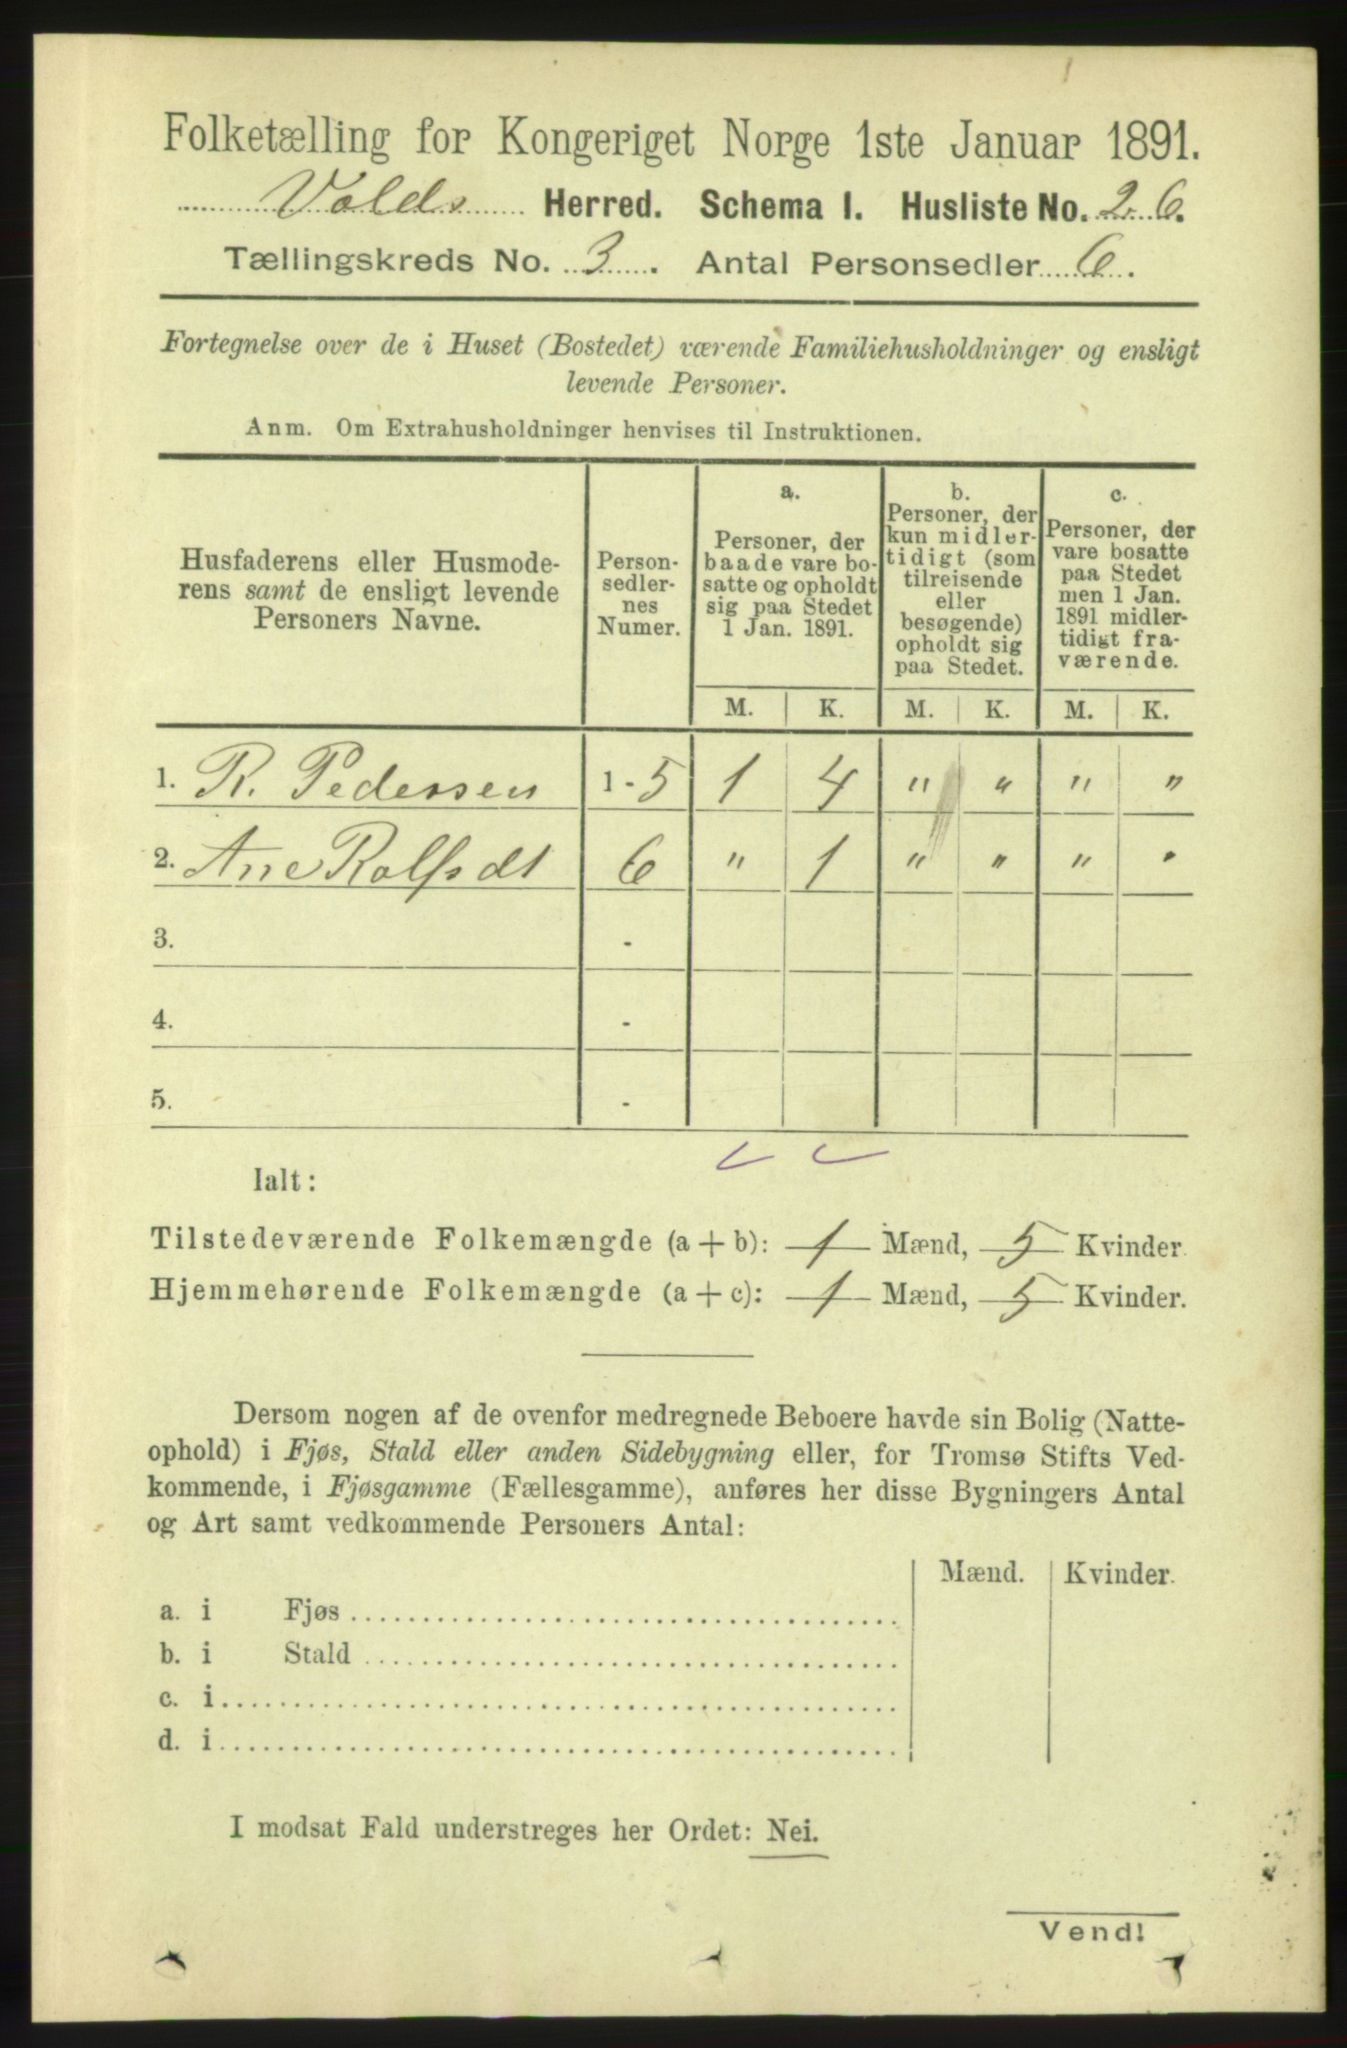 Folketælling for Kongeriget Norge 1ste Januar 1891.
Volds Herred. Schema I. Husliste No. 26.
Tællingskreds No. 3. Antal Personsedler 6.
Fortegnelse over de i Huset (Bostedet) værende Familiehusholdninger og ensligt
levende Personer.
Anm. Om Extrahusholdninger henvises til Instruktionen.
Husfaderens eller Husmode-
rens samt de ensligt levende
Personers Navne.
Person-
sedler-
nes
Numer.
a.
Personer, der
baade vare bo-
satte og opholdt
sig paa Stedet
1 Jan. 1891.
b.
Personer, der
kun midler-
tidigt (som
tilreisende
eller
besøgende)
opholdt sig
paa Stedet.
c.
Personer, der
vare bosatte
paa Stedet
men 1 Jan.
1891 midler-
tidigt fra-
værende.
M. K. M. K. M. K.
1. R. Pedersen 1 - 5 1 4 " " " "
2. Ane Rolfsdt 6 " 1 " " " "
3. -
4. -
5. -
Ialt:
Tilstedeværende Folkemængde (a + b): 1 Mænd, 5 Kvinder.
Hjemmehørende Folkemængde (a + c): 1 Mænd, 5 Kvinder.
Dersom nogen af de ovenfor medregnede Beboere havde sin Bolig (Natte-
ophold) i Fjøs, Stald eller anden Sidebygning eller, for Tromsø Stifts Ved-
kommende, i Fjøsgamme (Fællesgamme), anføres her disse Bygningers Antal
og Art samt vedkommende Personers Antal:
Mænd. Kvinder.
a. i Fjøs
b. i Stald
c. i
d. i
I modsat Fald understreges her Ordet: Nei.
Vend!